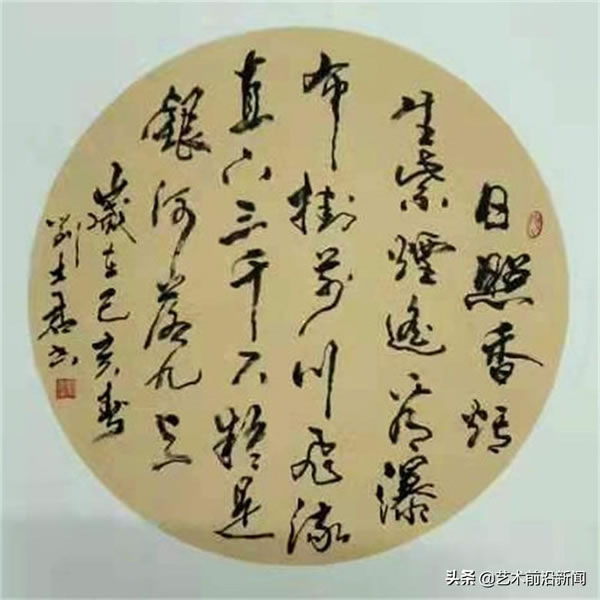 日照香炉
生紫煙遙看瀑
布掛前川飛流
直下三千尺疑是
銀河落九天
歲在己亥春
劉士君书
头条 @艺术前沿新闻